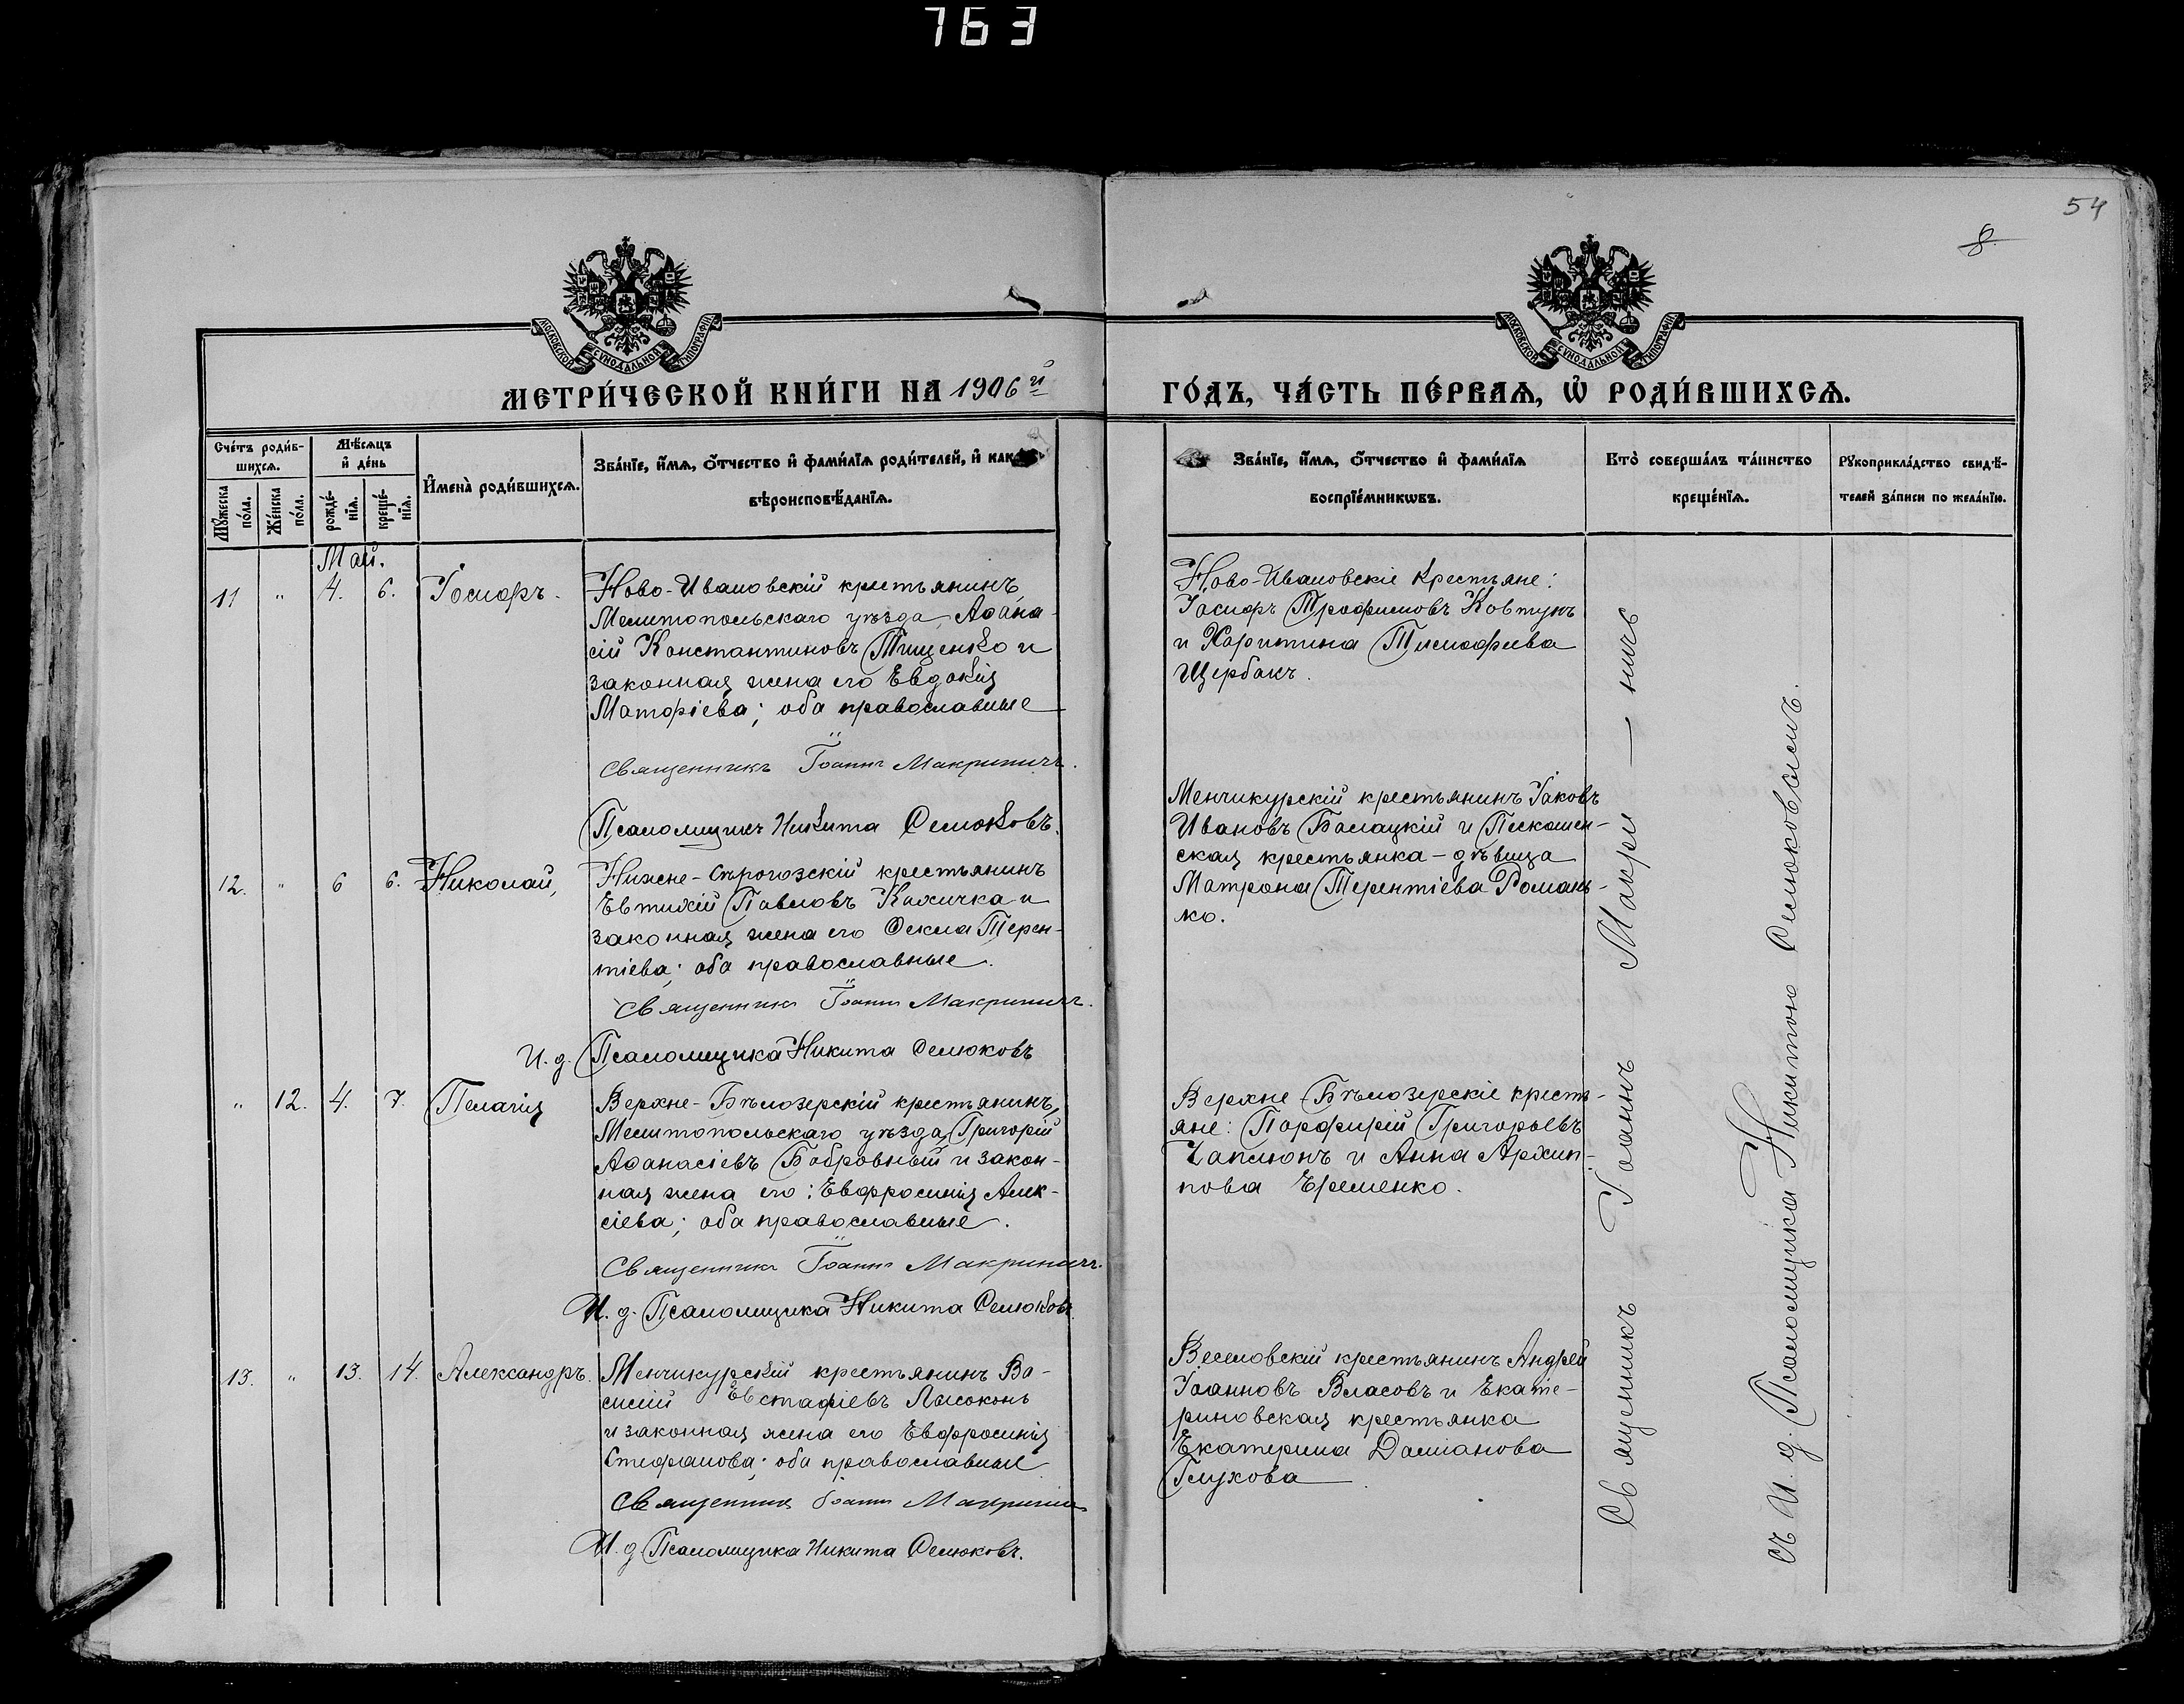 763
54
8
МОСКОВСКОЙ СѴНОДАЛЬНОЙ ТИПОГРАФІИ
МОСКОВСКОЙ СѴНОДАЛЬНОЙ ТИПОГРАФІИ
МЕТРИ́ЧЕСКОЙ КНИ́ГИ НА 1906й ГО́ДЪ, ЧА́СТЬ ПЕ́РВАѦ, Ѡ҆ РОДИ́ВШИХСѦ.
Сче́тъ роди́в-
шихсѧ.
Мꙋ́жеска по́ла.
Же́нска по́ла.
Мѣ́сѧцъ
и҆ де́нь
рожде́-
нїѧ.
креще́-
нїѧ.
И҆мена̀ роди́вшихсѧ.
Зва́нїе, и҆́мѧ, ѻ҆́тчество и҆ фами́лїѧ роди́телей, и҆ как
вѣроисповѣ́данїѧ.
Зва́нїе, и҆́мѧ, ѻ҆́тчество и҆ фами́лїѧ
воспрїе́мникѡвъ.
Кто̀ соверша́лъ та́инство
креще́нїѧ.
Рꙋкоприкла́дство свидѣ́-
телей за́писи по жела́нїю.
Май.
11 " 4. 6. Іосифъ.
Ново-Ивановскій крестьянинъ,
Мелитопольскаго уѣзда, Аѳана-
сій Константиновъ Тищенко и
законная жена его Евдокія
Матфіева; оба православные
Священникъ Іоаннъ Макриничъ.
Псаломщикъ Никита Селюковъ.
Ново-Ивановскіе крестьяне:
Іосифъ Трофимовъ Ковтунъ
и Харитина Тимофеева
Щербакъ.
12. " 6 6. Николай,
Нижне-Сѣрогозскій крестьянинъ
Евтихій Павловъ Кахичка и
законная жена его Ѳекла Терен-
тіева; оба православные.
Священникъ Іоаннъ Макриничъ.
И. д. Псаломщика Никита Селюковъ
Менчикурскій крестьянинъ Іаковъ
Ивановъ Балацкій и Пескошен-
ская крестьянка-дѣвица
Матрона Терентіева Романь-
ко.
" 12. 4. 7. Пелагія
Верхне-Бѣлозерскій крестьянинъ,
Мелитопольскаго уѣзда, Григорій
Аѳанасіевъ Бобровный и закон-
ная жена его: Евфросинія Алек-
сіева; оба православные.
Священникъ Іоаннъ Макриничъ.
И. д. Псаломщика Никита Селюковъ.
Верхне-Бѣлозерскіе кресть-
яне: Порфирій Григорьевъ
Чаплюнъ и Анна Архип-
пова Еременко.
13. " 13. 14. Александръ.
Менчикурскій крестьянинъ Ва-
силій Евстафіевъ Лысоконь
и законная жена его Евфросинія
Стефанова; оба православные
Священникъ Іоаннъ Макриничъ
И. д. Псаломщика Никита Селюковъ.
Веселовскій крестьянинъ Андрей
Іоанновъ Власовъ и Екате-
риновская крестьянка
Екатерина Даміанова
Глухова
Священникъ Іоаннъ Макри — ничъ
съ И. д. Псаломщика Никитою Селюковымъ.